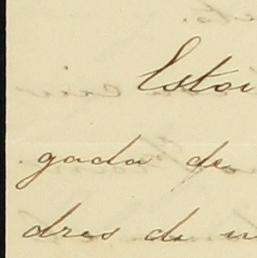 Estou
gada de
dres de